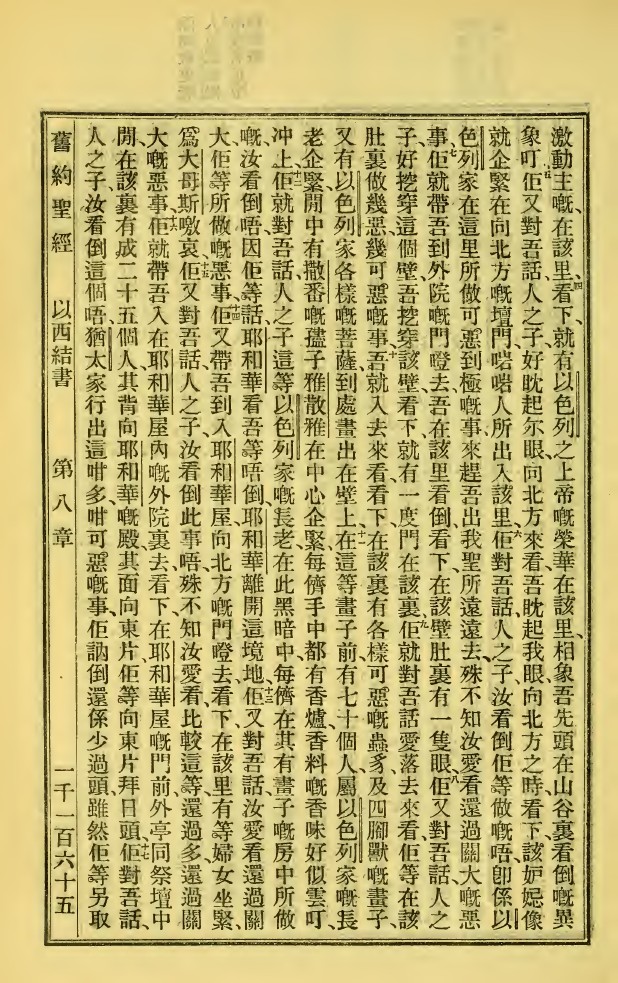 激動主嘅在該里、四看下、就有以色列之上帝嘅榮華在該里、相象吾先頭在山谷裏看倒嘅異
象叮、五佢又對吾話、人之子好眈起尔眼、向北方來看、吾眈起我眼向北方之時、看下該妒𡞾像
就企緊在向北方嘅壇門啱啱人所出入該里、六佢對吾話、人之子、汝看倒佢等做嘅唔、卽係以
色列家在這里所做可惡到極嘅事、來趕吾出我聖所遠遠去、殊不知汝愛看還過關大嘅惡
事、七佢就帶吾到外院嘅門𨅝去、吾在該里看倒、看下、在該壁肚裏有一隻眼、八佢又對吾話、人之
子好挖穿這個壁、吾挖穿該壁、看下、就有一度門在該裏、九佢就對吾話、愛落去來看佢等在該
肚裏做幾惡幾可惡嘅事、十吾就入去來看、看下、在該裏有各樣可惡嘅蟲豸及四腳獸嘅畫子、
又有以色列家各樣嘅菩薩、到處畫出在壁上、十一在這等畫子前有七十個人、屬以色列家嘅長
老企緊、閒中有撒番嘅孻子雅散雅在中心企緊、每儕手中都有香爐、香料嘅香味好似雲叮
冲上、十二佢就對吾話、人之子、這等以色列家嘅長老在此黑暗中、每儕在其有畫子嘅房中所做
嘅、汝看倒唔、因佢等話、耶和華看吾等唔倒、耶和華離開這境地、十三佢又對吾話、汝愛看還過關
大佢等所做嘅惡事、十四佢又帶吾到入耶和華屋向北方嘅門𨅝去、看下、在該里有等婦女坐緊、
爲大哥斯噭哀、十五佢又對吾話、人之子、汝看倒此事唔、殊不知汝愛看比較這等還過多還過關
大嘅惡事、十六佢就帶吾入在耶和華屋內嘅外院裏去、看下、在耶和華屋嘅門前、外亭同祭壇中
閒、在該裏有成二十五個人、其背向耶和華嘅殿、其面向東片、佢等向東片拜日頭、十七佢對吾話、
人之子、汝看倒這個唔、猶太家行出這咁多咁可惡嘅事、佢訥倒還係少過頭、雖然佢等另取
舊約聖經　以西結書　第八章　一千一百六十五